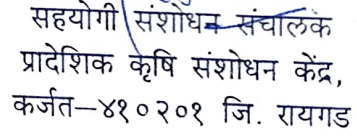 सहयोगी संशोधन संचालक
प्रादेशिक कृषि संशोधन केंद्र,
कर्जत–४१०२०१ जि. रायगड